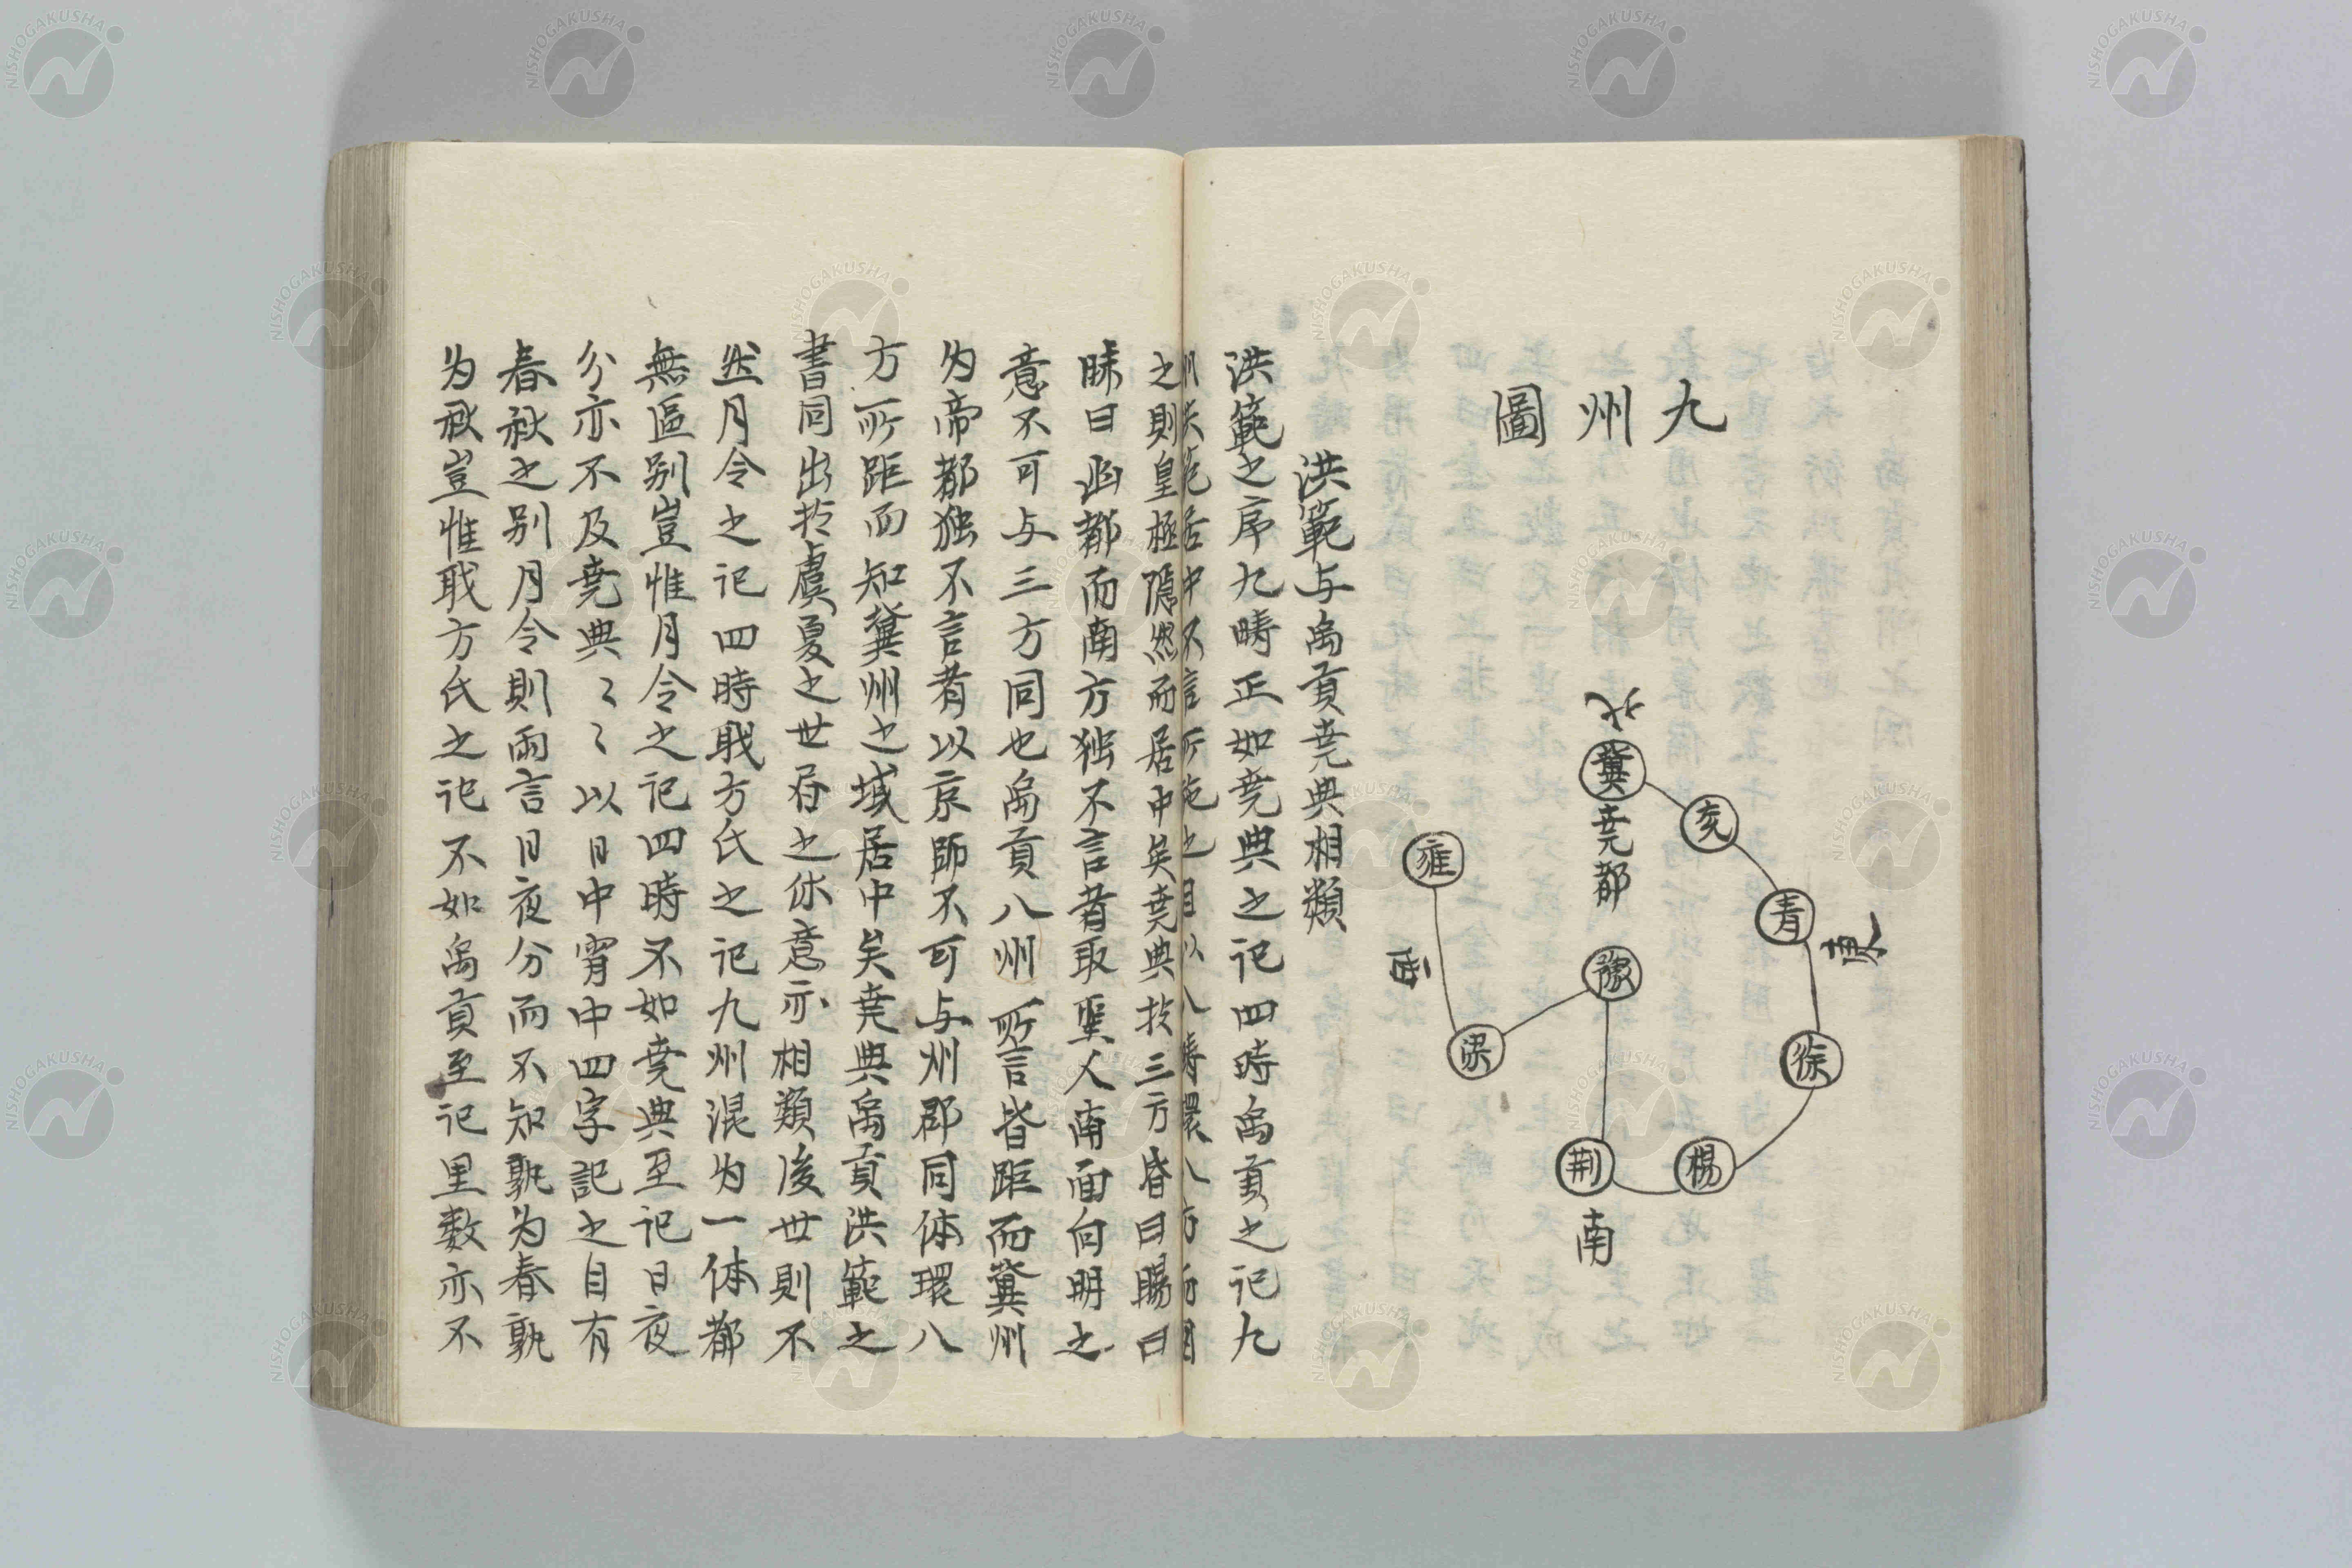 九州圖
北
冀
堯都
兖
青
東
徐
楊
荆
南
豫
梁
雍
西
洪範与禹貢堯典相類
洪範之序九疇正如堯典之记四時禹貢之记九
州洪範居中不言所施之目以八疇環八方而
之則皇極隱然而居中矣堯典於三方昏曰暘曰
昧曰幽都而南方独不言者取聖人南面向明之
意不可与三方同也禹貢八州所言皆距而冀州
为帝都独不言者以京師不可与州郡同体環八
方所距而知冀州之域居中矣堯典禹貢洪範之
書同出於虞夏之世存之休意亦相類後世則不
然月令之记四時职方氏之记九州混为一体都
無區别豈惟月令之记四時不如堯典至记日夜
分亦不及堯典〻〻以日中宵中四字記之自有
春秋之别月令則兩言日夜分而不知孰为春孰
为秋豈惟职方氏之记不如禹貢至记里数亦不
NISHOGAKUSHA